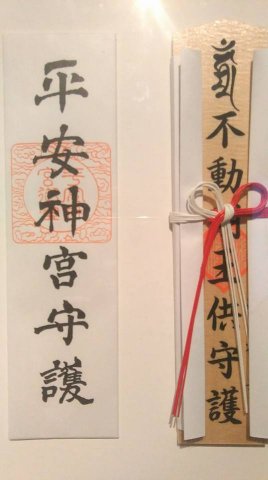 平安神宮守護
不動明王供守護